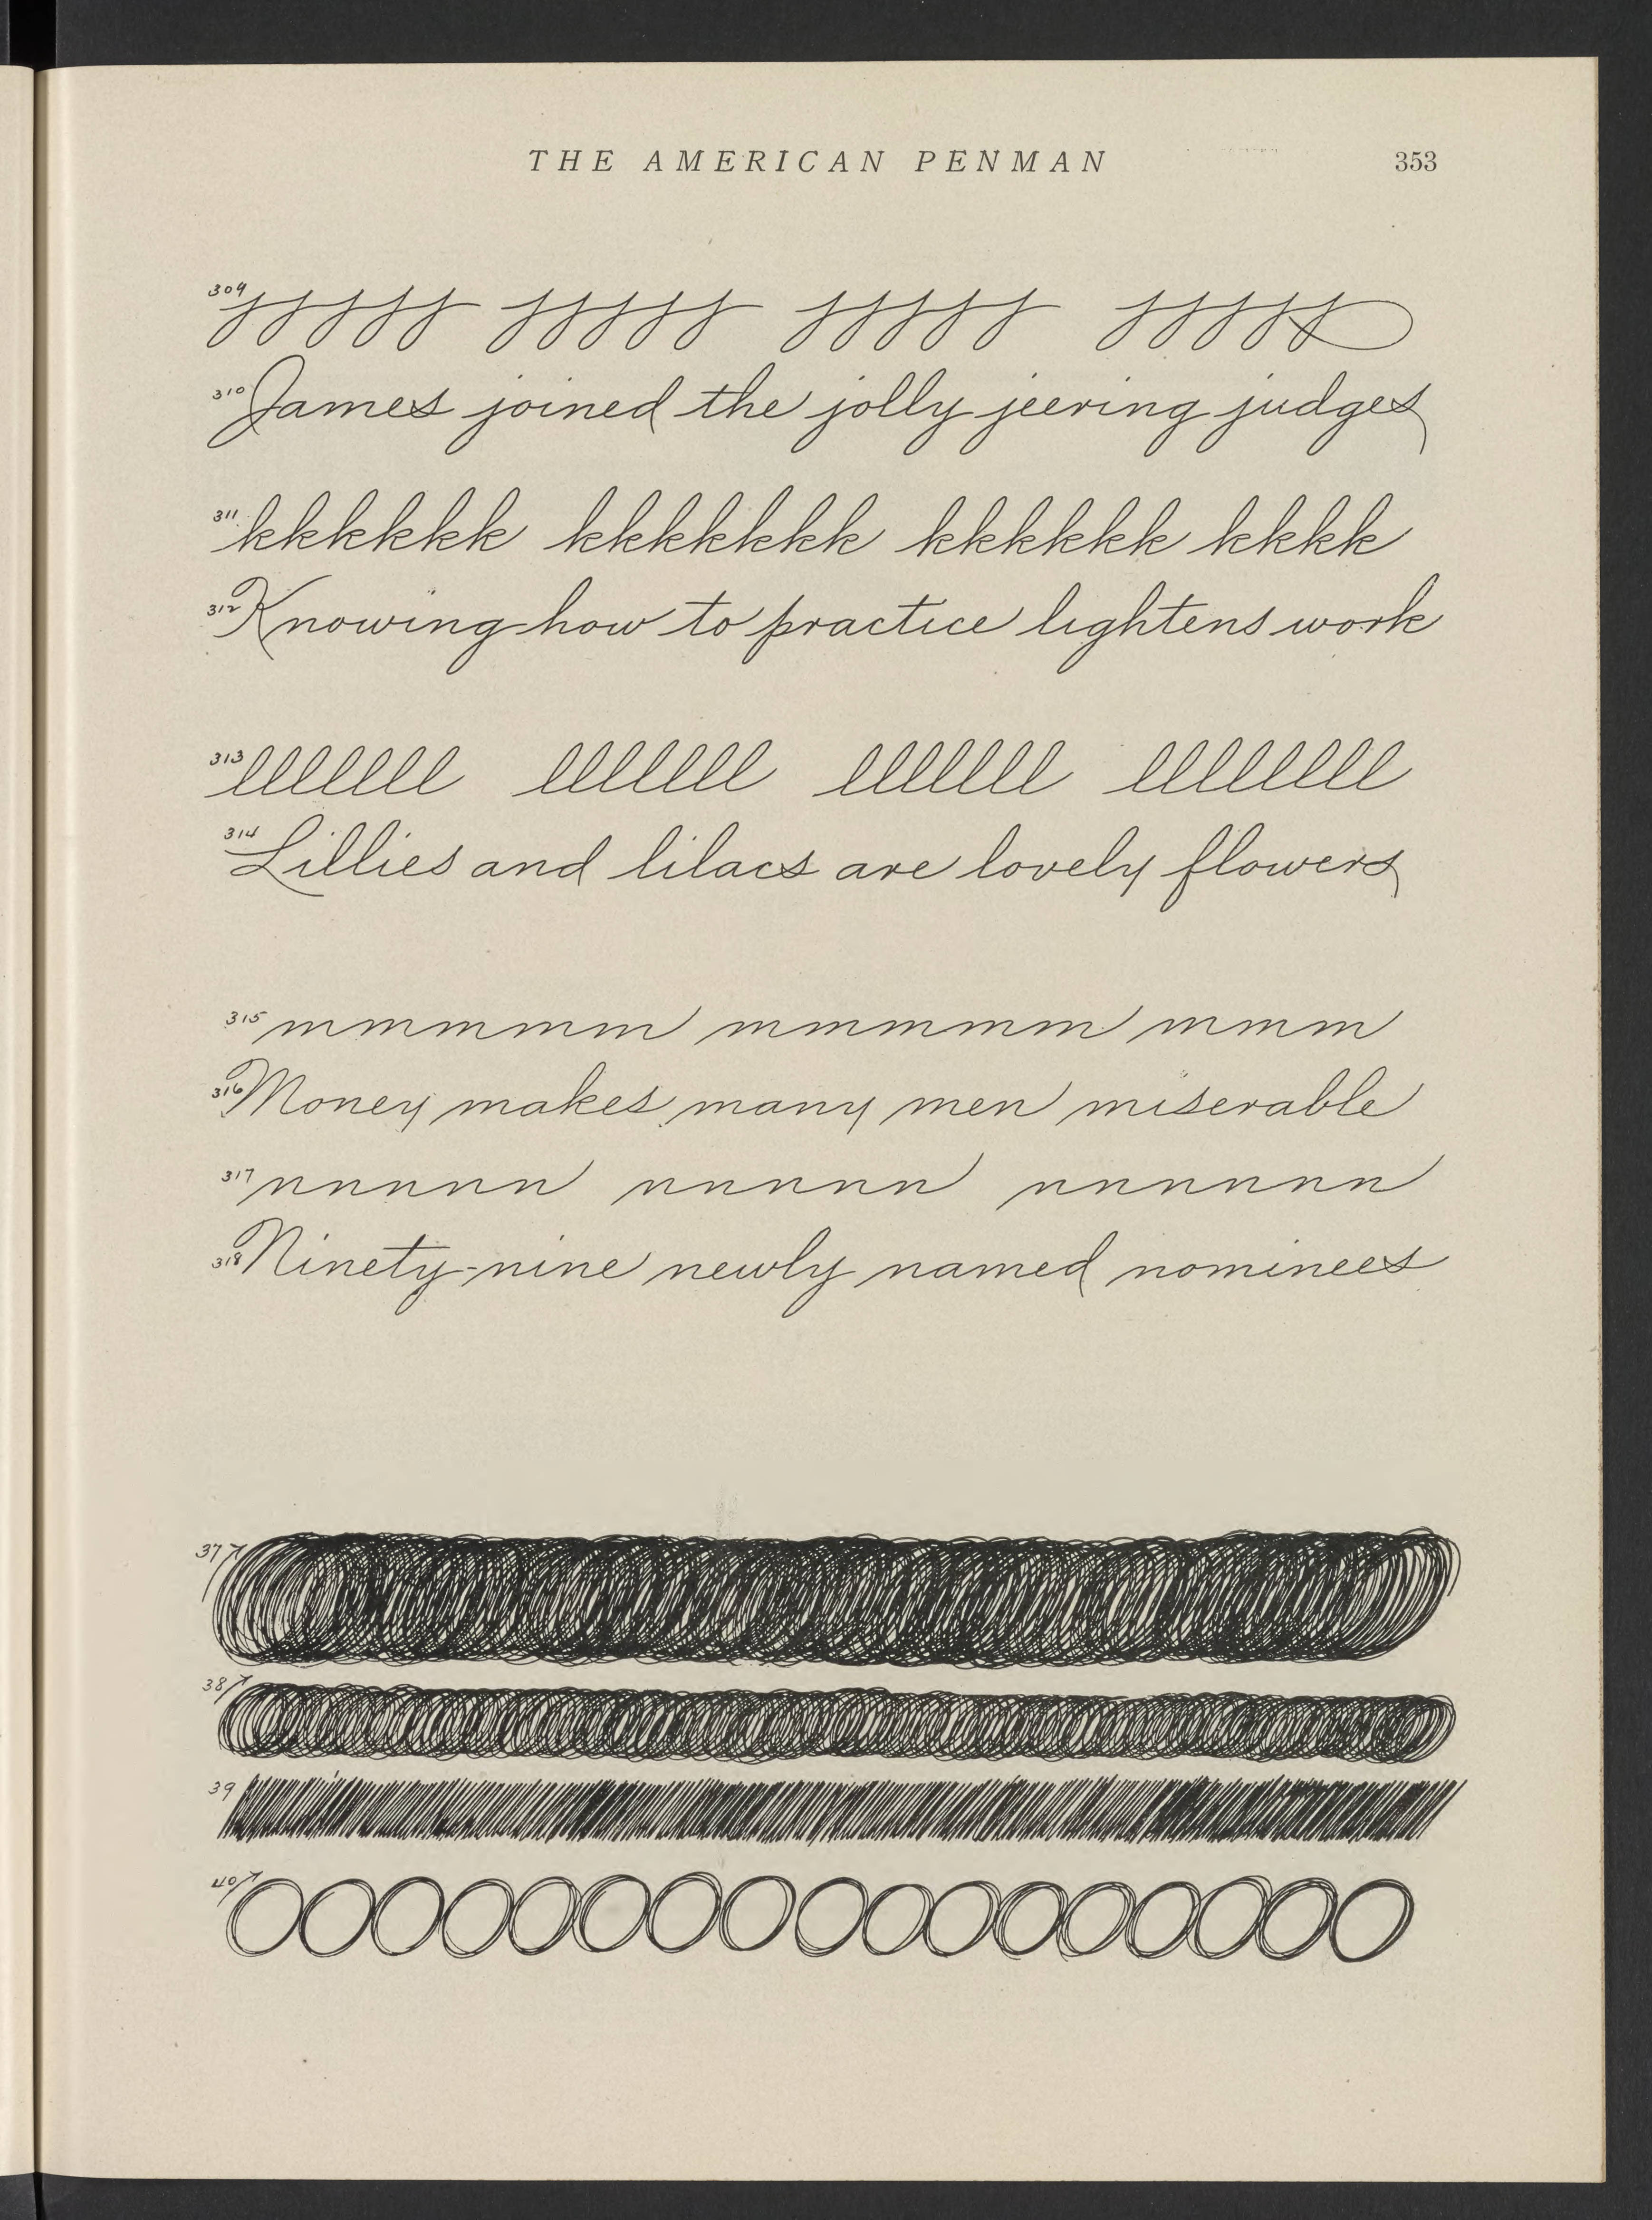 THE AMERICAN PENMAN 353
309 jjjjj jjjjj jjjjj jjjjj
310 James joined the jolly jeering judges
311 kkkkkk kkkkkkk kkkkkk kkkk
312 Knowing how to practice lightens work
313 llllllll llllllll llllllll lllllllll
314 Lillies and lilacs are lovely flowers
315 mmmmm mmmmm mmm
316 Money makes many men miserable
317 nnnnn nnnnn nnnnnn
318 Ninety-nine newly named nominees
37
38
39
40